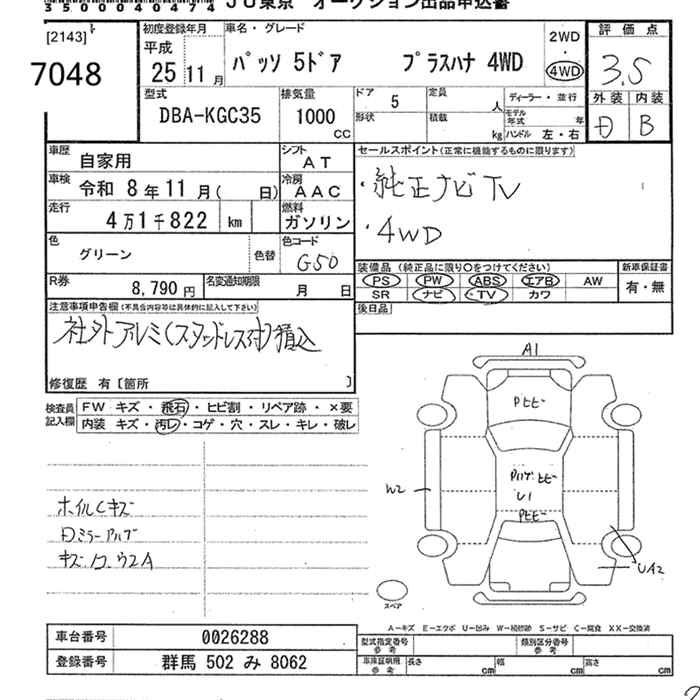 35000040474 JU東京 オークション出品申込書
[2143]
7048
初度登録年月
平成
25年11月
車名・グレード
パッソ 5ドア プラスハナ 4WD
2WD
・
4WD
評価点
3.5
外装 内装
D B
型式
DBA-KGC35
排気量
1000
CC
ドア 5
形状
定員 人
積載 kg
ディーラー・並行
モデル年式 年
ハンドル 左・右
車歴 自家用
シフト AT
車検 令和 8年11月( 日)
冷房 AAC
走行 4万1千822 km
燃料 ガソリン
色 グリーン 色替
色コード G50
R券 8,790円
名変通知期限 月 日
セールスポイント(正常に機能するものに限ります)
・純正ナビ TV
・4WD
装備品(純正品に限り○をつけてください)
PS PW ABS エアB AW
SR ナビ TV カワ
新車保証書
有・無
後日品
注意事項申告欄(不具合内容等は具体的に記入して下さい)
社外アルミ(スタッドレス付)積込
修復歴 有〔箇所 〕
検査員記入欄
FW キズ・飛石・ヒビ割・リペア跡・×要
内装 キズ・汚レ・コゲ・穴・スレ・キレ・破レ
ホイルCキズ
キズ
A1
Pヒビ
W2
U1
Pヒビ
UA2
スペア
A-キズ E-エクボ U-凹み W-補修跡 S-サビ C-腐食 XX-交換済
車台番号 0026288
登録番号 群馬 502 み 8062
型式指定番号 参考
類別区分番号 参考
車庫証明用 参考
長さ cm 幅 cm 高さ cm